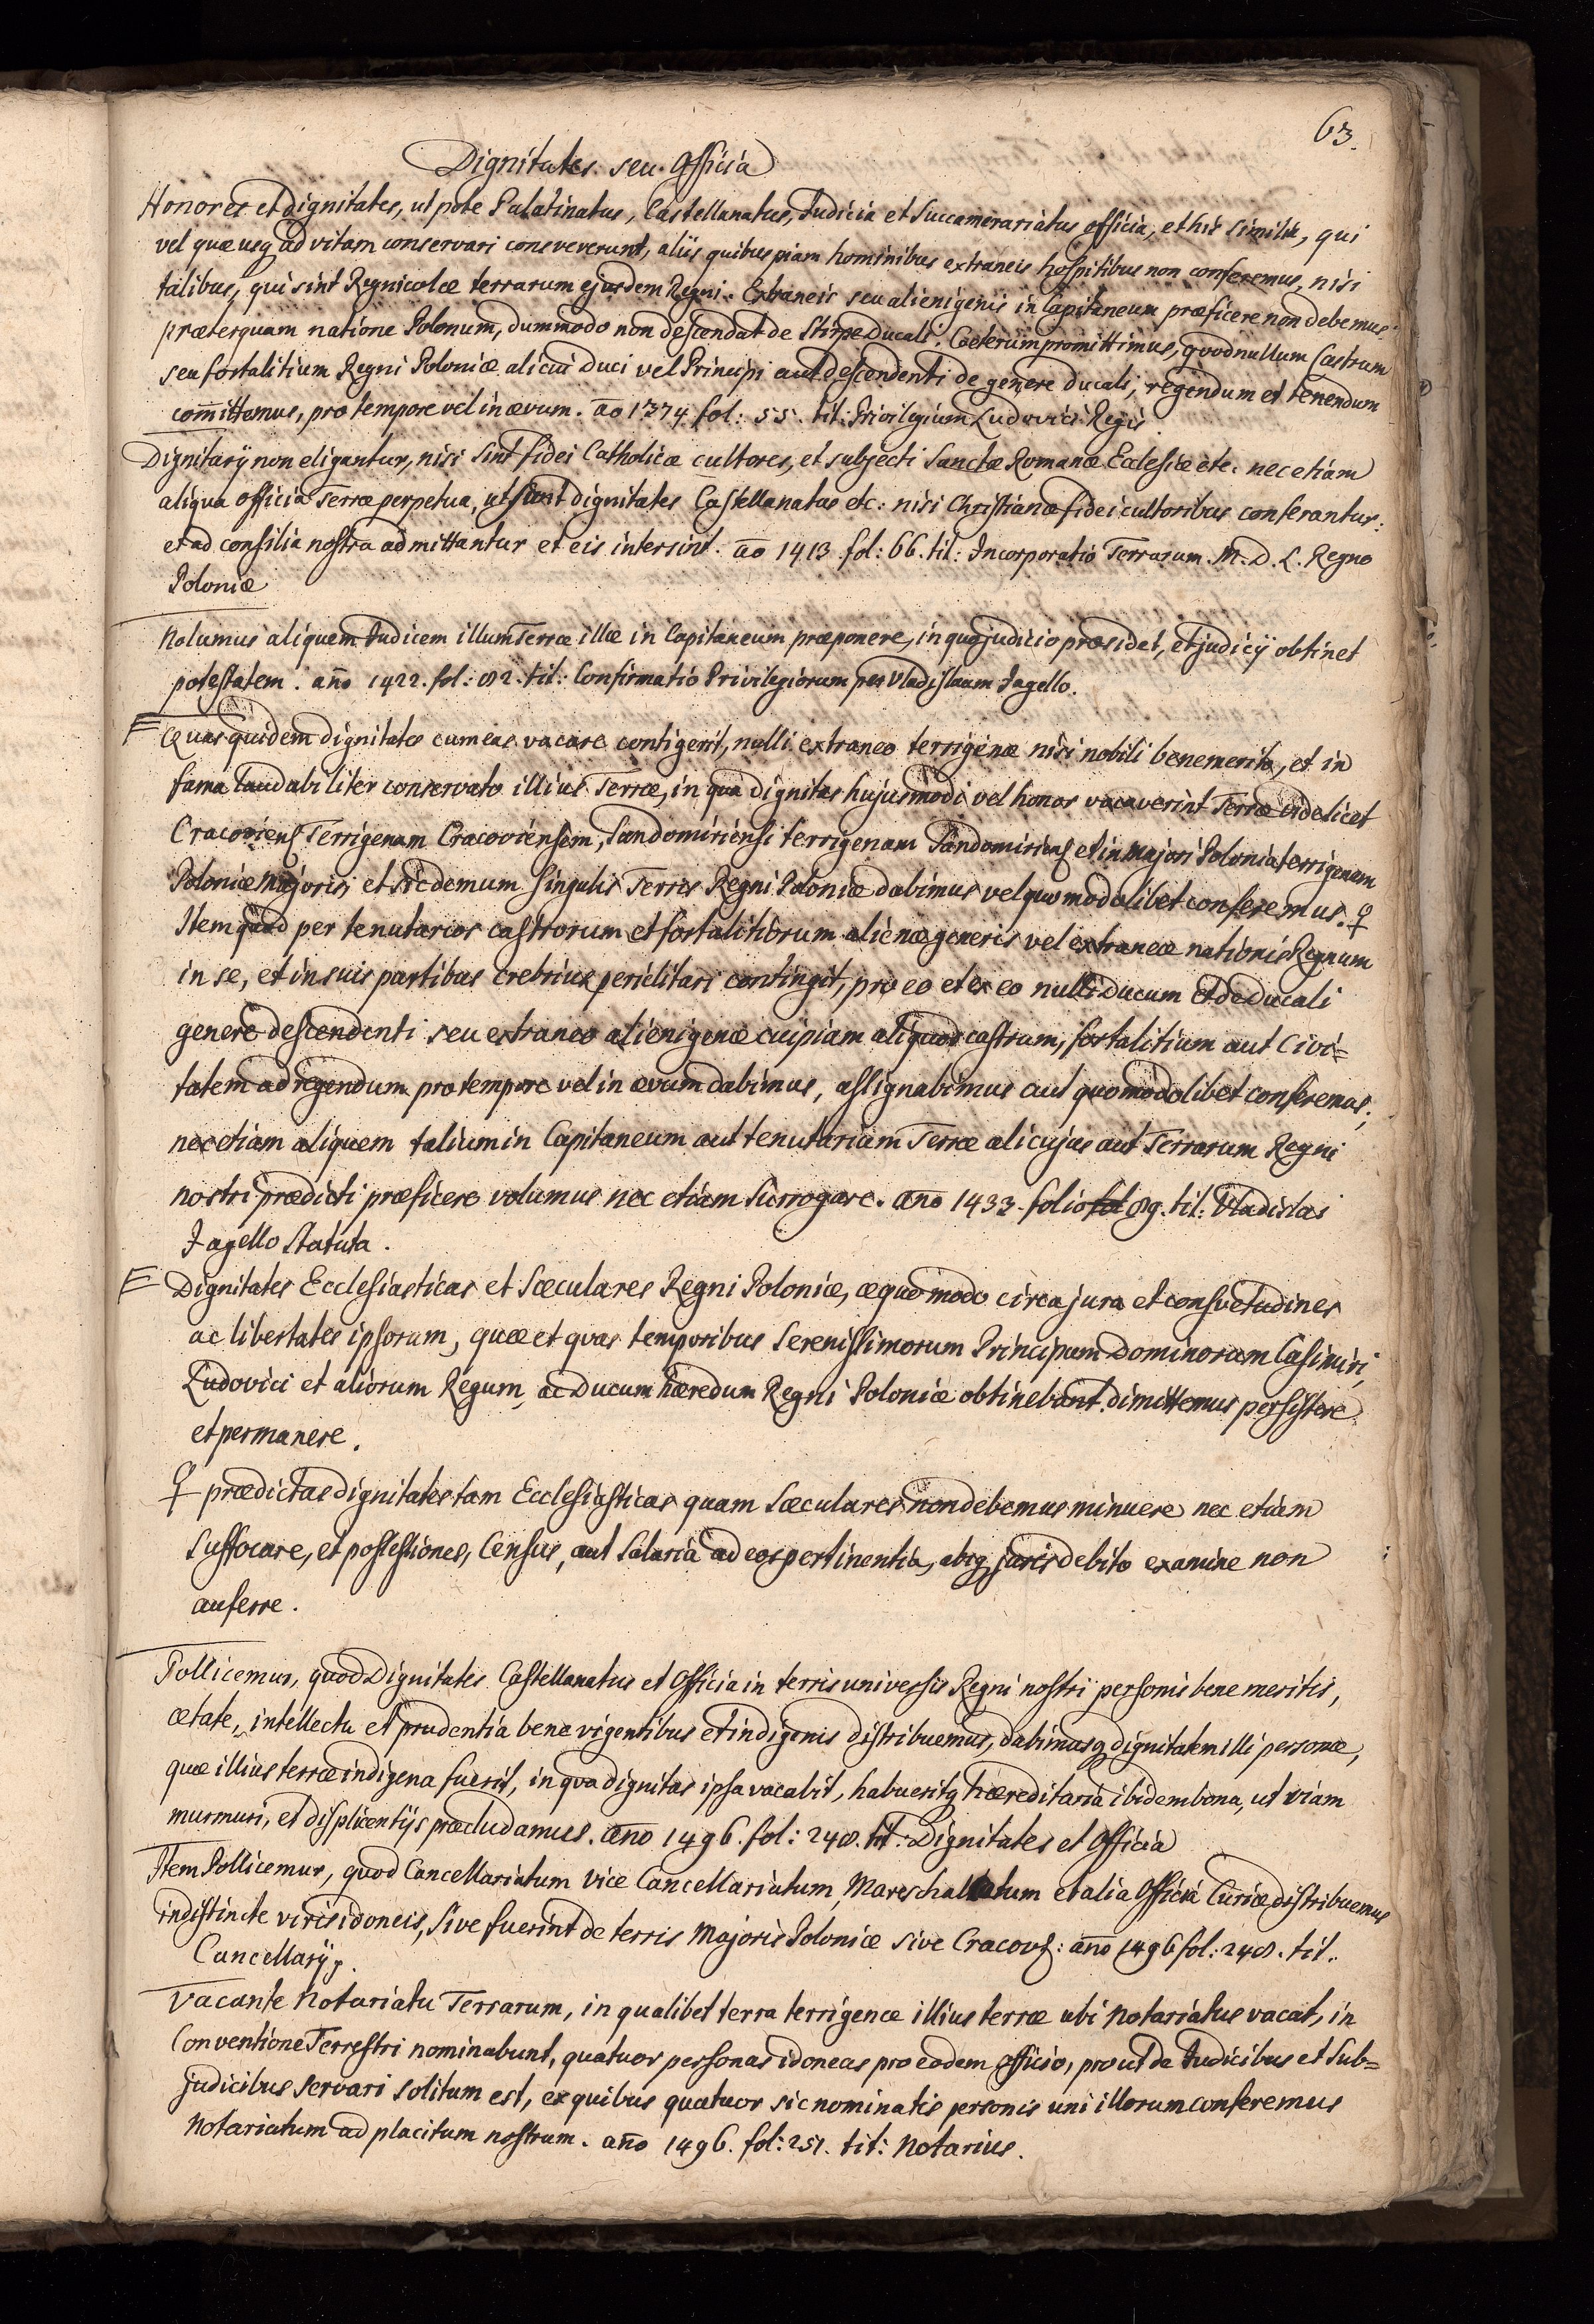 63.
Dignitates seu Officia
Honores et dignitates, ut pote Palatinatus, Castellanatus, Judicia et Succamerariatus officia, et his similia, qui
vel quæ usq ad vitam conservari consveverunt, aliis quibuspiam hominibus extraneis hospitibus non conferemus, nisi
talibus, qui sint Regnicolæ terrarum ejusdem Regni. Extraneis seu alienigenis in Capitaneum præficere non debemus:
præterquam natione Polonum, dummodo non descendat de Stirpe Ducali. Cæterum promittimus, quod nullum Castrum
seu fortalitium Regni Poloniæ alicui Duci vel Principi aut descendenti de genere Ducali, regendum et tenendum
com̄ittemus, pro tempore vel in ævum. a̅o 1374 fol: 55. tit: Privilegium Ludovici Regis.
Dignitarÿ non eligantur, nisi sint fidei Catholicæ cultores, et subjecti Sanctæ Romanæ Ecclesiæ etc. nec etiam
aliqua officia Terræ perpetua, ut sunt dignitates Castellanatus etc: nisi Christianæ fidei cultoribus conferantur:
et ad consilia nostra admittantur et eis intersint. a̅o 1413 fol: 66. tit: Incorporatio Terrarum. M. D. L. Regno
Poloniæ
Nolumus aliquem Judicem illum Terræ illæ in Capitaneum præponere, in qua judicio præsidet, et judicÿ obtinet
potestatem. an̅o 1422. fol: 82. tit: Confirmatio Privilegiorum per Vladislaum Jagello.
Quas quidem dignitates cum eas vacare contigerit, nulli extraneo terrigenæ nisi nobili benemerito, et in
fama laudabiliter conservato illius Terræ, in qua dignitas hujusmodi vel honor vacaverint Terræ videlicet
Cracoviens Terrigenam Cracoviensem, Sandomiriensi terrigenam Sandomiriens et in majori Polonia terrigenam
Poloniæ majoris, et sic demum singulis Terris Regni Poloniæ dabimus vel quomodolibet conferemus. ♀
Item quod per tenutarios castrorum et fortalitiorum alienæ generis vel extraneæ nationis Regnum
in se, et in suis partibus crebrius periclitari contingit, pro eo et ex eo nulli Ducum et de Ducali
genere descendenti seu extraneo alienigenæ cuipiam aliquod castrum, fortalitium aut Civi=
tatem ad regendum pro tempore vel in ævum dabimus, assignabimus aut quomodolibet conferemus;
nec etiam aliquem talium in Capitaneum aut tenutarium Terræ alicujus aut Terrarum Regni
nostri prædicti præficere volumus nec etiam surrogare. an̅o 1433. folio fol 89. tit: Vladislai
Jagello Statuta.
Dignitates Ecclesiasticas et Sæculares Regni Poloniæ, æquo modo circa jura et consvetudines
ac libertates ipsorum, quæ et quas temporibus Serenissimorum Principum Dominorum Casimiri,
Ludovici et aliorum Regum, ac Ducum hæredum Regni Poloniæ obtinebant dimittemus persistere
et permanere.
♀ prædictas dignitates tam Ecclesiasticas quam Sæculares non debemus minuere nec etiam
suffocare, et possessiones, Census, aut Salaria ad eos pertinentia, absq juris debito examine non
auferre.
Pollicemur, quod Dignitates Castellanatus et Officia in terris universis Regni nostri personis bene meritis,
ætate, intellectu et prudentia bene vigentibus et indigenis distribuemus, dabimusq dignitatem illi personæ,
quæ illius terræ indigena fuerit, in qva dignitas ipsa vacabit, habueritq hæreditaria ibidem bona, ut viam
murmuri, et displicentÿs præcludamus. an̅o 1496. fol: 248. tit: Dignitates et Officia
Item Pollicemur, quod Cancellariatum vice Cancellariatum, Mareschallatum et alia Officia Curiæ distribuemus
indistincte viris idoneis, sive fuerint de terris Majoris Poloniæ sive Cracovs: an̅o 1496 fol: 248. tit.
Cancellarÿ.
Vacante Notariatu Terrarum, in qualibet terra terrigenæ illius terræ ubi Notariatus vacat, in
Conventione Terrestri nominabunt, quatuor personas idoneas pro eodem officio, prout de Judicibus et Sub=
judicibus servari solitum est, ex quibus quatuor sic nominatis personis uni illorum conferemus
Notariatum ad placitum nostrum. an̅o 1496. fol: 251. tit: Notarius.